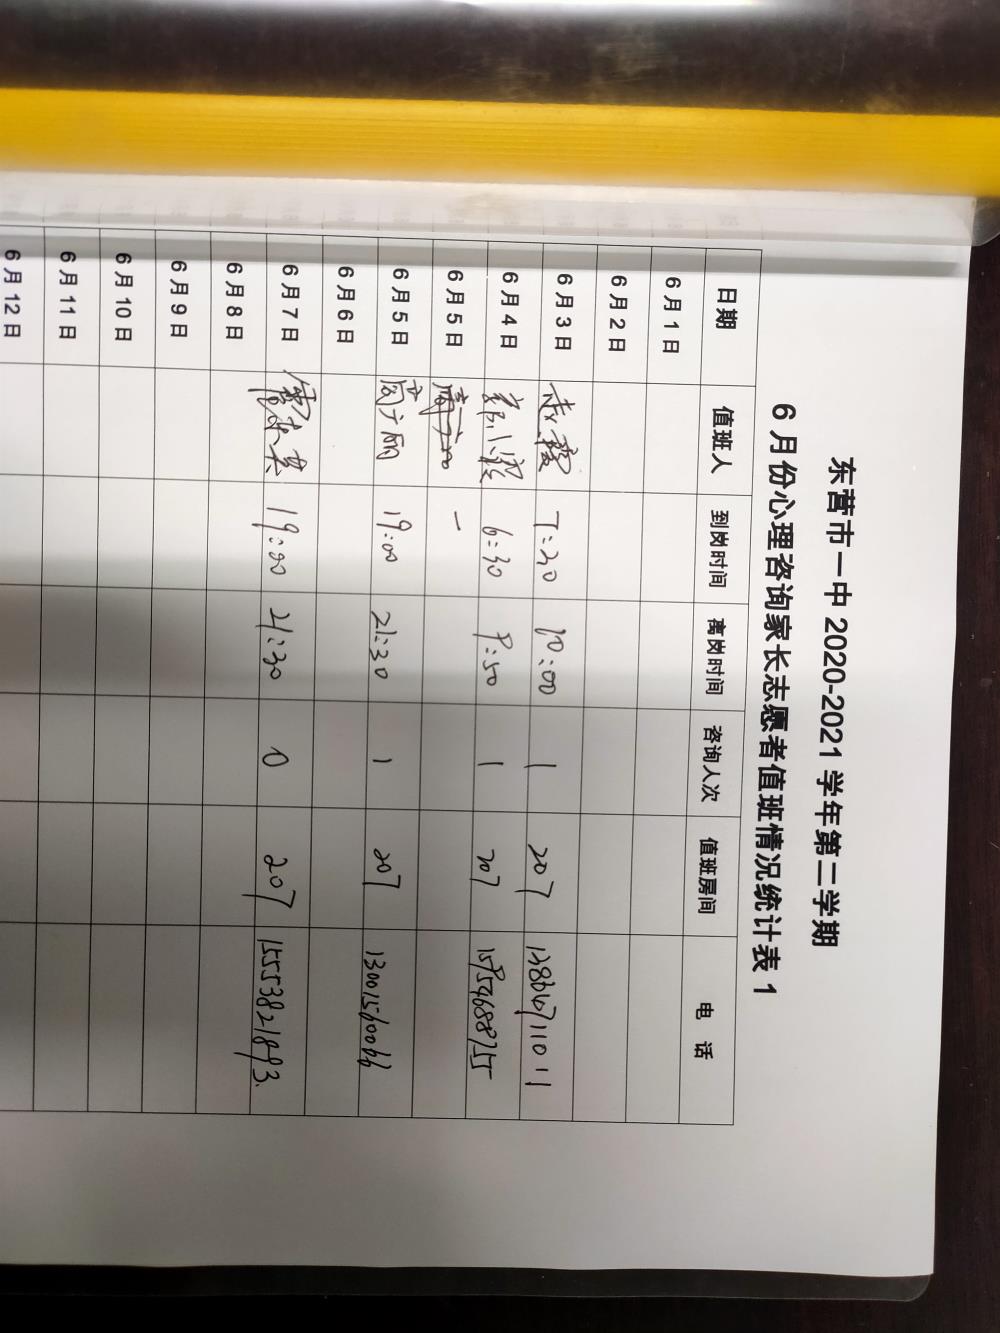 东营市一中 2020-2021 学年第二学期
6 月份心理咨询家长志愿者值班情况统计表 1
日期 值班人 到岗时间 离岗时间 咨询人次 值班房间 电 话
6 月 1 日
6 月 2 日
6 月 3 日 赵霞 7:30 10:00 1 207
6 月 4 日 6:30 9:50 1 207 15954688755
6 月 5 日 一
6 月 5 日 周广丽 19:00 21:30 1 207 13001560066
6 月 6 日
6 月 7 日 19:00 21:30 0 207 15553821893
6 月 8 日
6 月 9 日
6 月 10 日
6 月 11 日
6 月 12 日